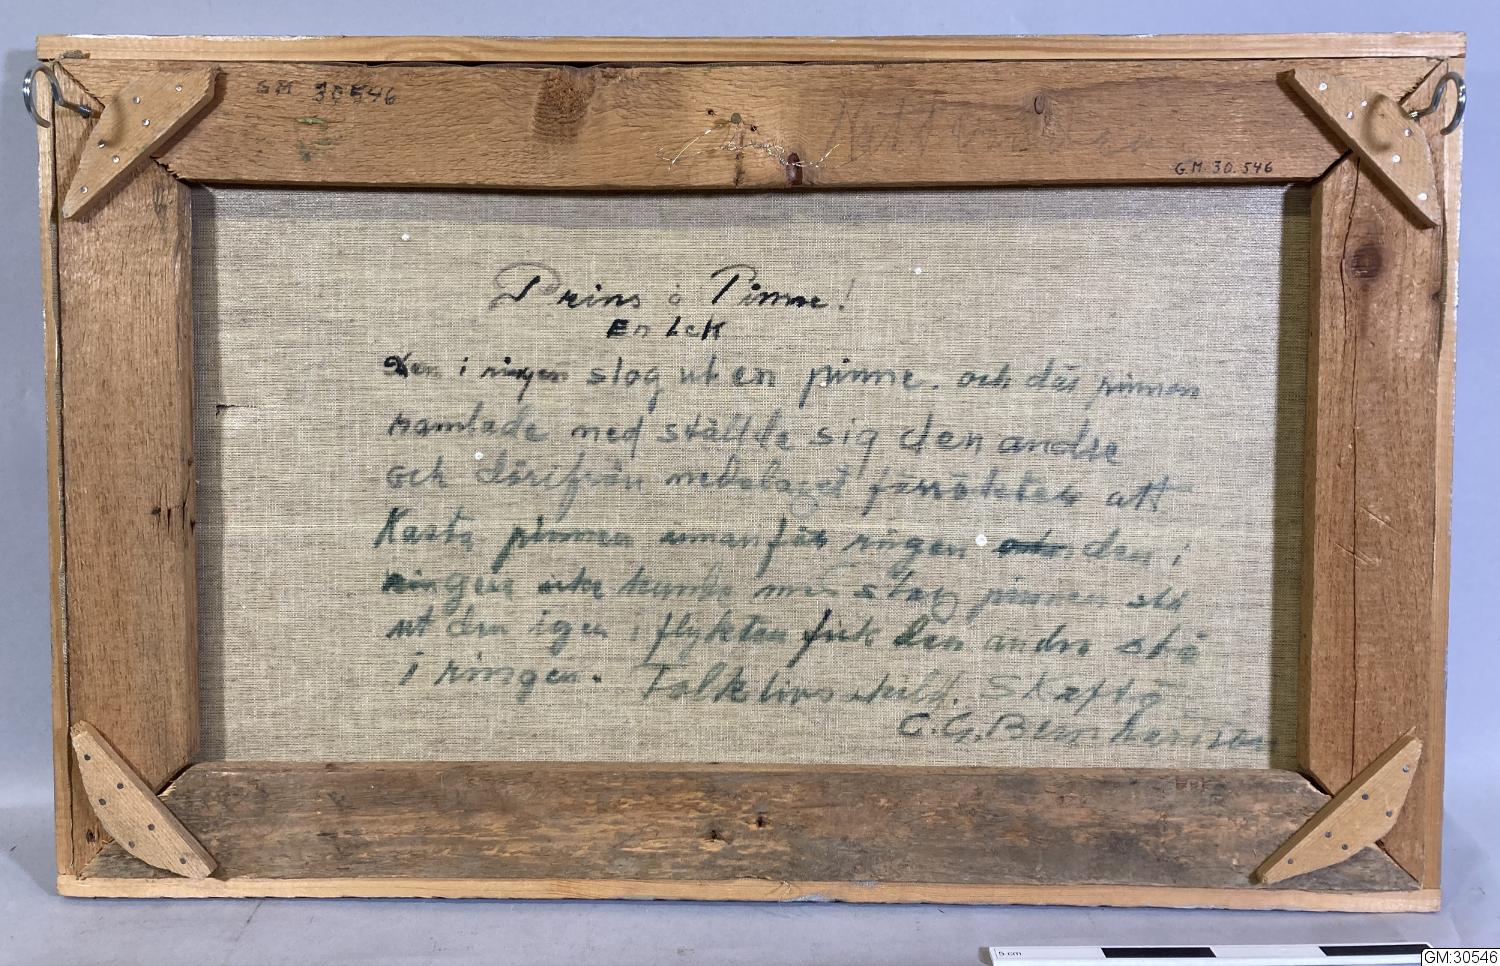 GM 30546
G.M. 30.546
Prins å Pinne!
En Lek
Den i ringen slog ut en pinne. och där pinnen
ramlade ned ställde sig den andre
och därifrån nedslaget försökte att
Kasta pinnen innanför ringen den i
ringen icke kunde slag pinnen
ut den igen i flykten fick den andre stå
i ringen. Folklivs Skaftö
C.G. Bernhardson
5 cm
GM:30546